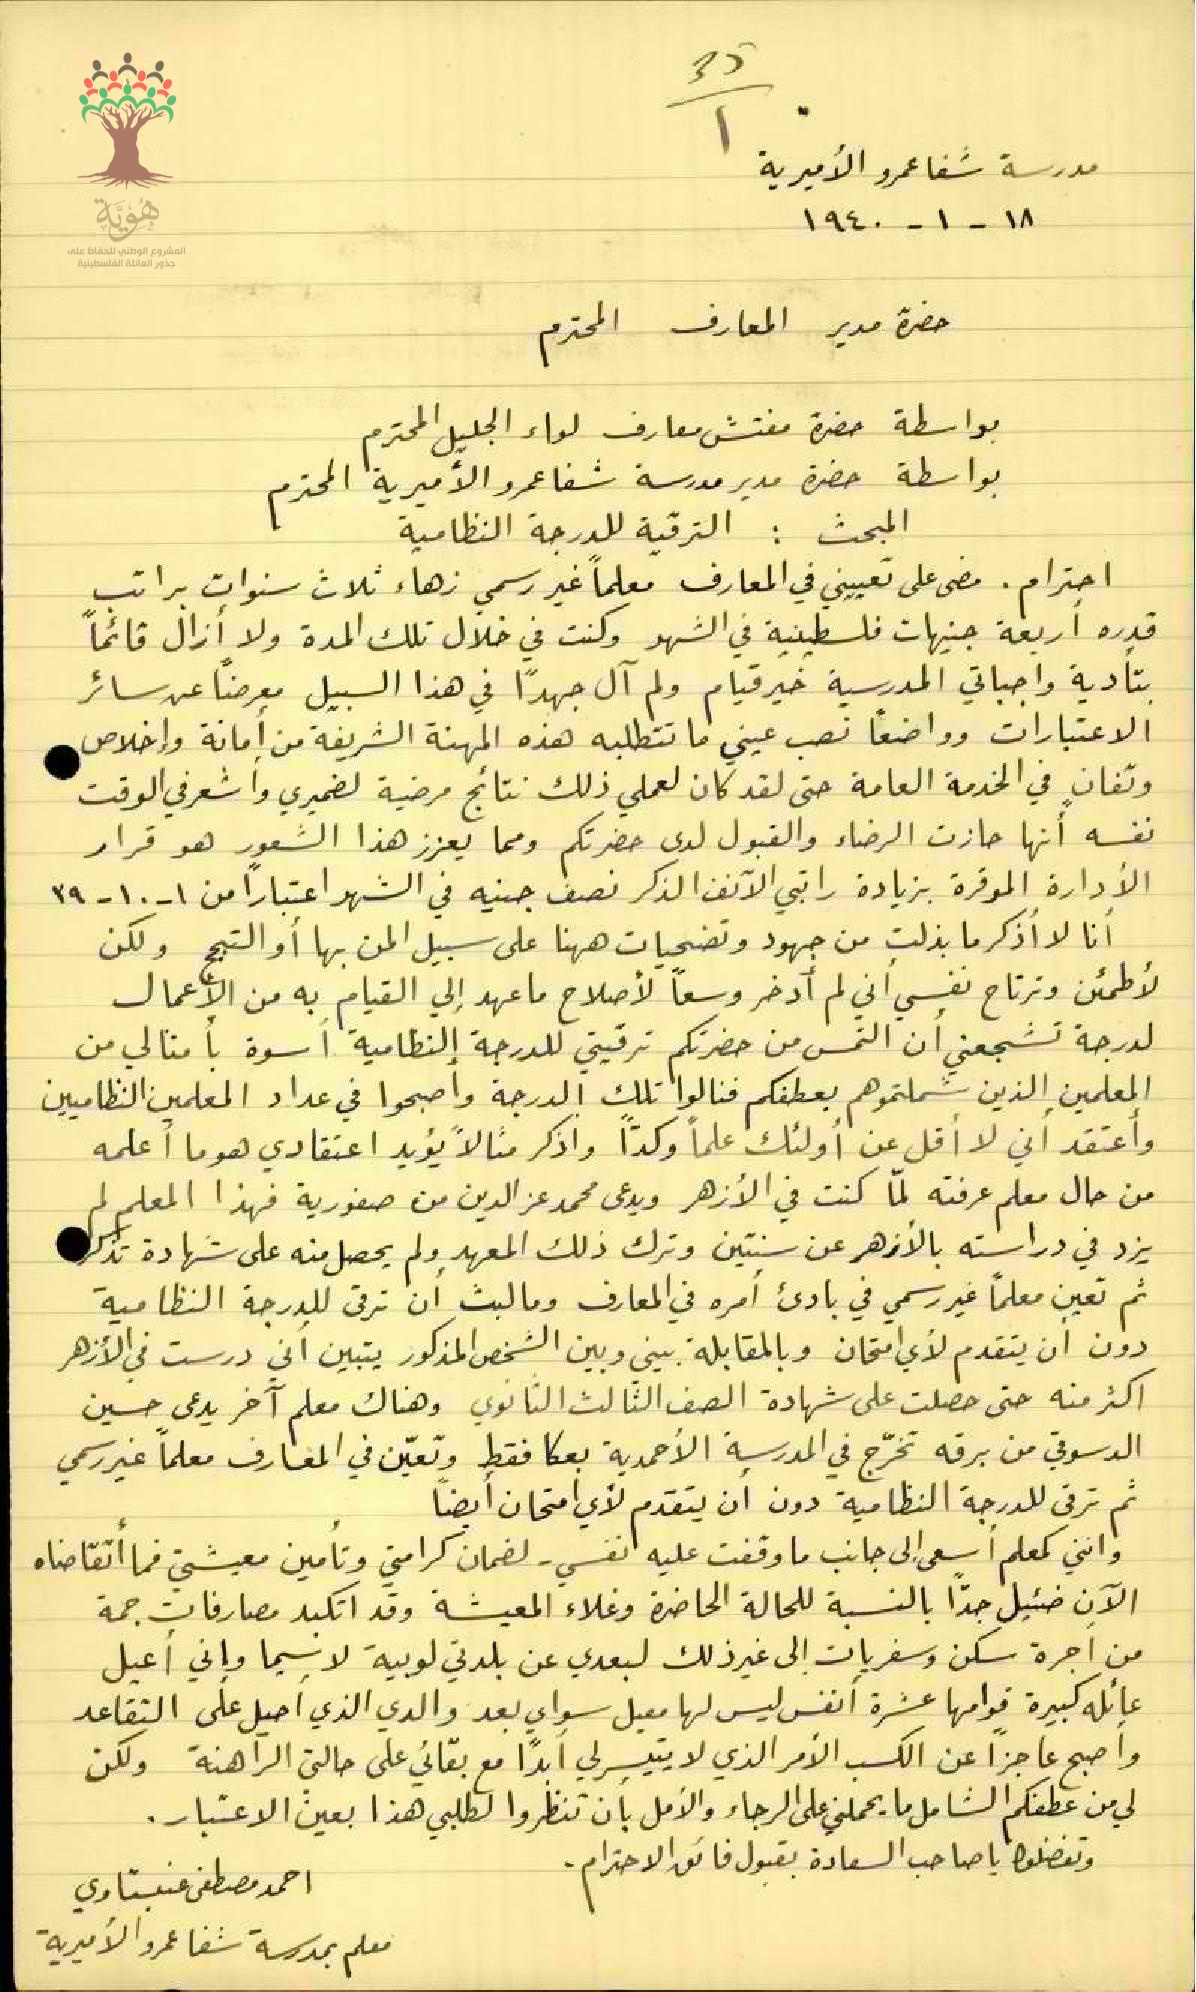 35
1
هُوِيَّة
المشروع الوطني للحفاظ على
جذور العائلة الفلسطينية
مدرسة شفا عمرو الأميرية
١٨ - ١ - ١٩٤٠
حضرة مدير المعارف المحترم
بواسطة حضرة مفتش معارف لواء الجليل المحترم
بواسطة حضرة مدير مدرسة شفا عمرو الأميرية المحترم
المبحث : الترقية للدرجة النظامية
احترام . مضى على تعييني في المعارف معلماً غير رسمي زهاء ثلاث سنوات براتب
قدره أربعة جنيهات فلسطينية في الشهر وكنت في خلال تلك المدة ولا أزال قائماً
بتأدية واجباتي المدرسية خير قيام ولم آل جهدًا في هذا السبيل معرضاً عن سائر
الاعتبارات وواضعاً نصب عيني ما تتطلبه هذه المهنة الشريفة من أمانة وإخلاص
وتفانٍ في الخدمة العامة حتى لقد كان لعملي ذلك نتائج مرضية لضميري وأشعر في الوقت
نفسه أنها حازت الرضاء والقبول لدى حضرتكم ومما يعزز هذا الشعور هو قرار
الأدارة الموقرة بزيادة راتبي الآنف الذكر نصف جنيه في الشهر اعتباراً من ١-١٠-٣٩
أنا لا أذكر ما بذلت من جهود وتضحيات ههنا على سبيل المن بها أو التبجح ولكن
لأطمئن وترتاح نفسي أني لم أدخر وسعاً لأصلاح ما عهد إلي القيام به من الأعمال
لدرجة تشجعني أن التمس من حضرتكم ترقيتي للدرجة النظامية أسوة بأمثالي من
المعلمين الذين شملتموهم بعطفكم فنالوا تلك الدرجة وأصبحوا في عداد المعلمين النظاميين
وأعتقد أني لا أقل عن أولئك علماً وكدّاً واذكر مثالاً يؤيد اعتقادي هو ما أعلمه
من حال معلم عرفته لمّا كنت في الأزهر ويدعى محمد عز الدين من صفورية فهذا المعلم لم
يزد في دراسته بالأزهر عن سنتين وترك ذلك المعهد ولم يحصل منه على شهادة تذكر
ثم تعين معلمًا غير رسمي في بادئ أمره في المعارف وما لبث أن ترقى للدرجة النظامية
دون أن يتقدم لأي امتحان وبالمقابلة بيني وبين الشخص المذكور يتبين أني درست في الأزهر
اكثر منه حتى حصلت على شهادة الصف الثالث الثانوي وهناك معلم آخر يدعى حسين
الدسوقي من برقه تخرّج في المدرسة الأحمدية بعكا فقط وتعيّن في المعارف معلماً غير رسمي
ثم ترقى للدرجة النظامية دون أن يتقدم لأي امتحان أيضاً
وانني كمعلم أسعى إلى جانب ما وقفت عليه نفسي - لضمان كرامتي وتأمين معيشتي فما أتقاضاه
الآن ضئيل جدّاً بالنسبة للحالة الحاضرة وغلاء المعيشة وقد اتكبد مصارفات جمة
من أجرة سكن وسفريات إلى غير ذلك لبعدي عن بلدتي لوبية لا سيما وإني أعيل
عائله كبيرة قوامها عشرة أنفس ليس لها معيل سواي بعد والدي الذي أحيل على التقاعد
وأصبح عاجزاً عن الكسب الأمر الذي لا يتيسر لي أبدًا مع بقائي على حالتي الراهنة ولكن
لي من عطفكم الشامل ما يحملني على الرجاء والأمل بأن تنظروا لطلبي هذا بعين الاعتبار .
وتفضلوا يا صاحب السعادة بقبول فائق الاحترام .
احمد مصطفى
معلم بمدرسة شفا عمرو الأميرية